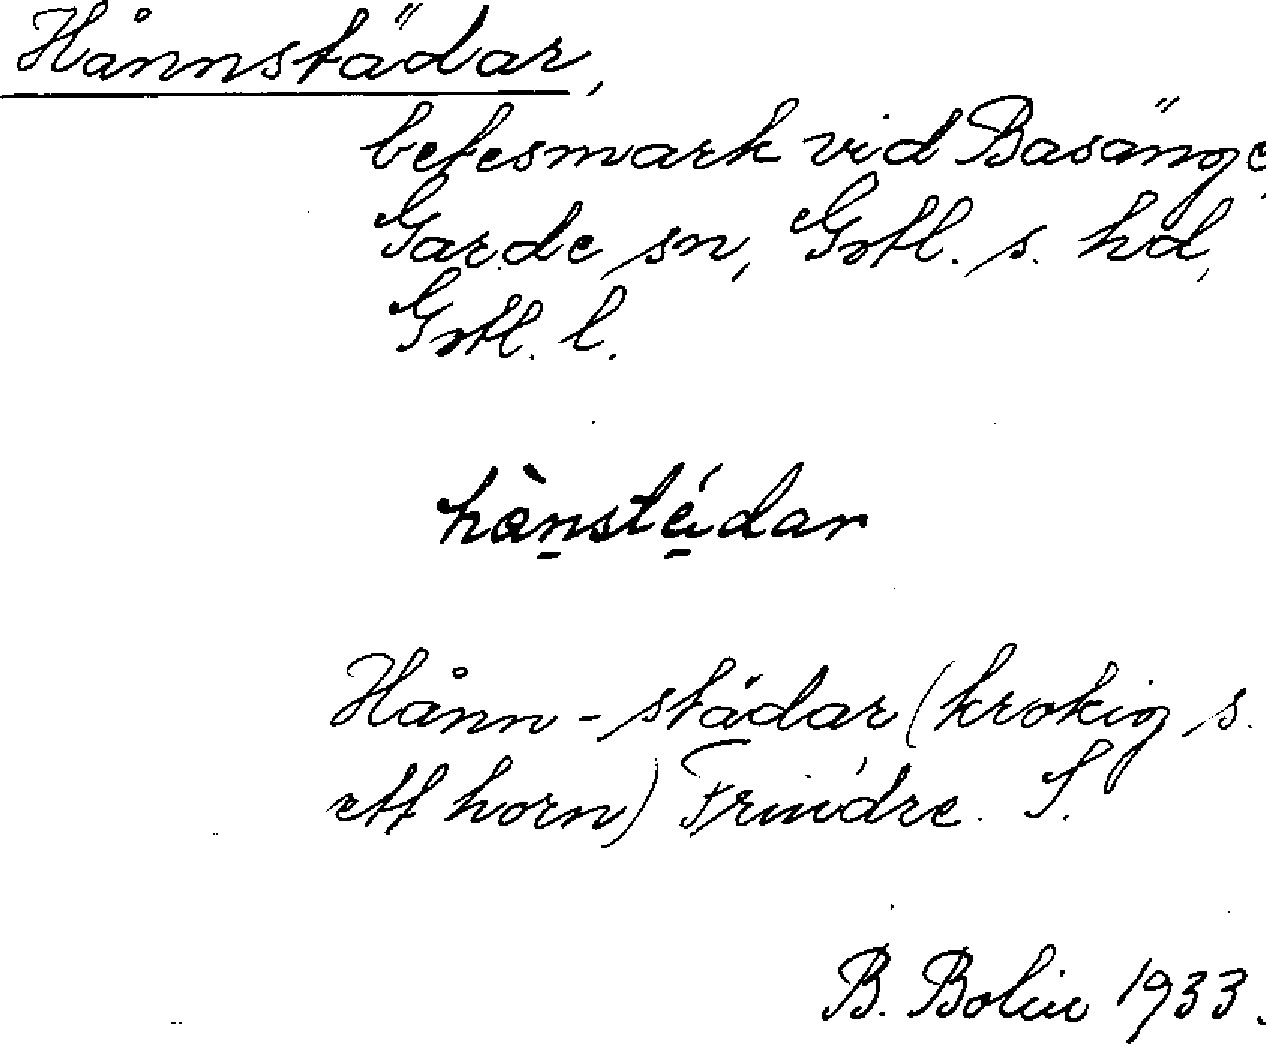 Hånnstädar,
betesmark vid Basänge,
Garde sn, Gotl. s. hd,
Gotl. l.
hànstádar
Hånn-städar (krokig s.
ett horn) S.
B. Bolin 1933.